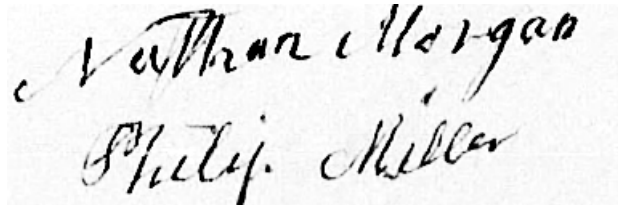 Nathan Morgan
Philip Miller